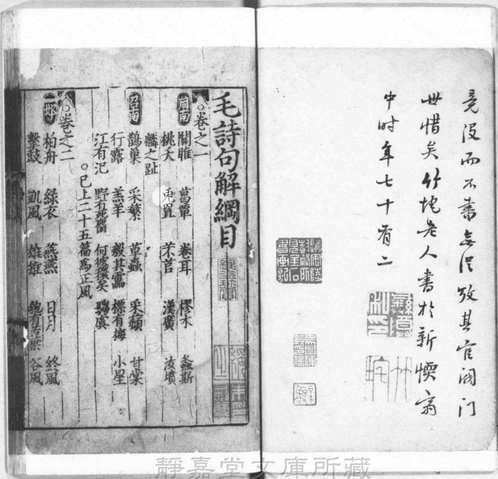 竟没而不書無從攷其官閥門
世惜矣竹垞老人書於新齋
中时年七十有二
毛詩句解綱目
○卷之一
周南 關雎 葛覃 卷耳 樛木 螽斯
桃夭 兎罝 芣苢 漢廣 汝墳
麟之趾
召南 鵲巢 采蘩 草蟲 采蘋 甘棠
行露 羔羊 殷其靁 摽有梅 小星
江有汜 野有死麕 何彼襛矣 騶虞
○已上二十五篇為正風
○卷之二
邶 柏舟 綠衣 燕燕 日月 終風
擊鼓 凱風 雄雉 匏有苦葉 谷風
靜嘉堂文庫所藏